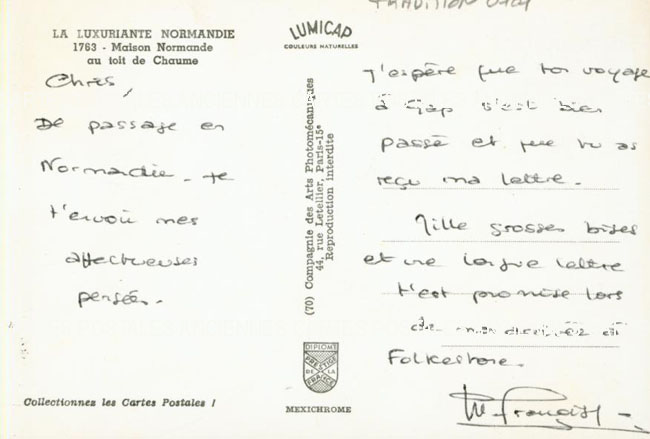 LA LUXURIANTE NORMANDIE
1763 - Maison Normande
au toit de Chaume
Chris,
De passage en
Normandie - je
t'envoie mes
affectueuses
pensées.
Collectionnez les Cartes Postales !
LUMICAP
COULEURS NATURELLES
(70) Compagnie des Arts Photomécaniques
44, rue Letellier, Paris-15e
Reproduction interdite
DIPLOME
PRESTIGE
DE LA
FRANCE
MEXICHROME
J'espère que ton voyage
à Gap s'est bien
passé et que tu as
reçu ma lettre.
Mille grosses bises
et une longue lettre
t'est promise lors
de mon arrivée à
Folkestone.